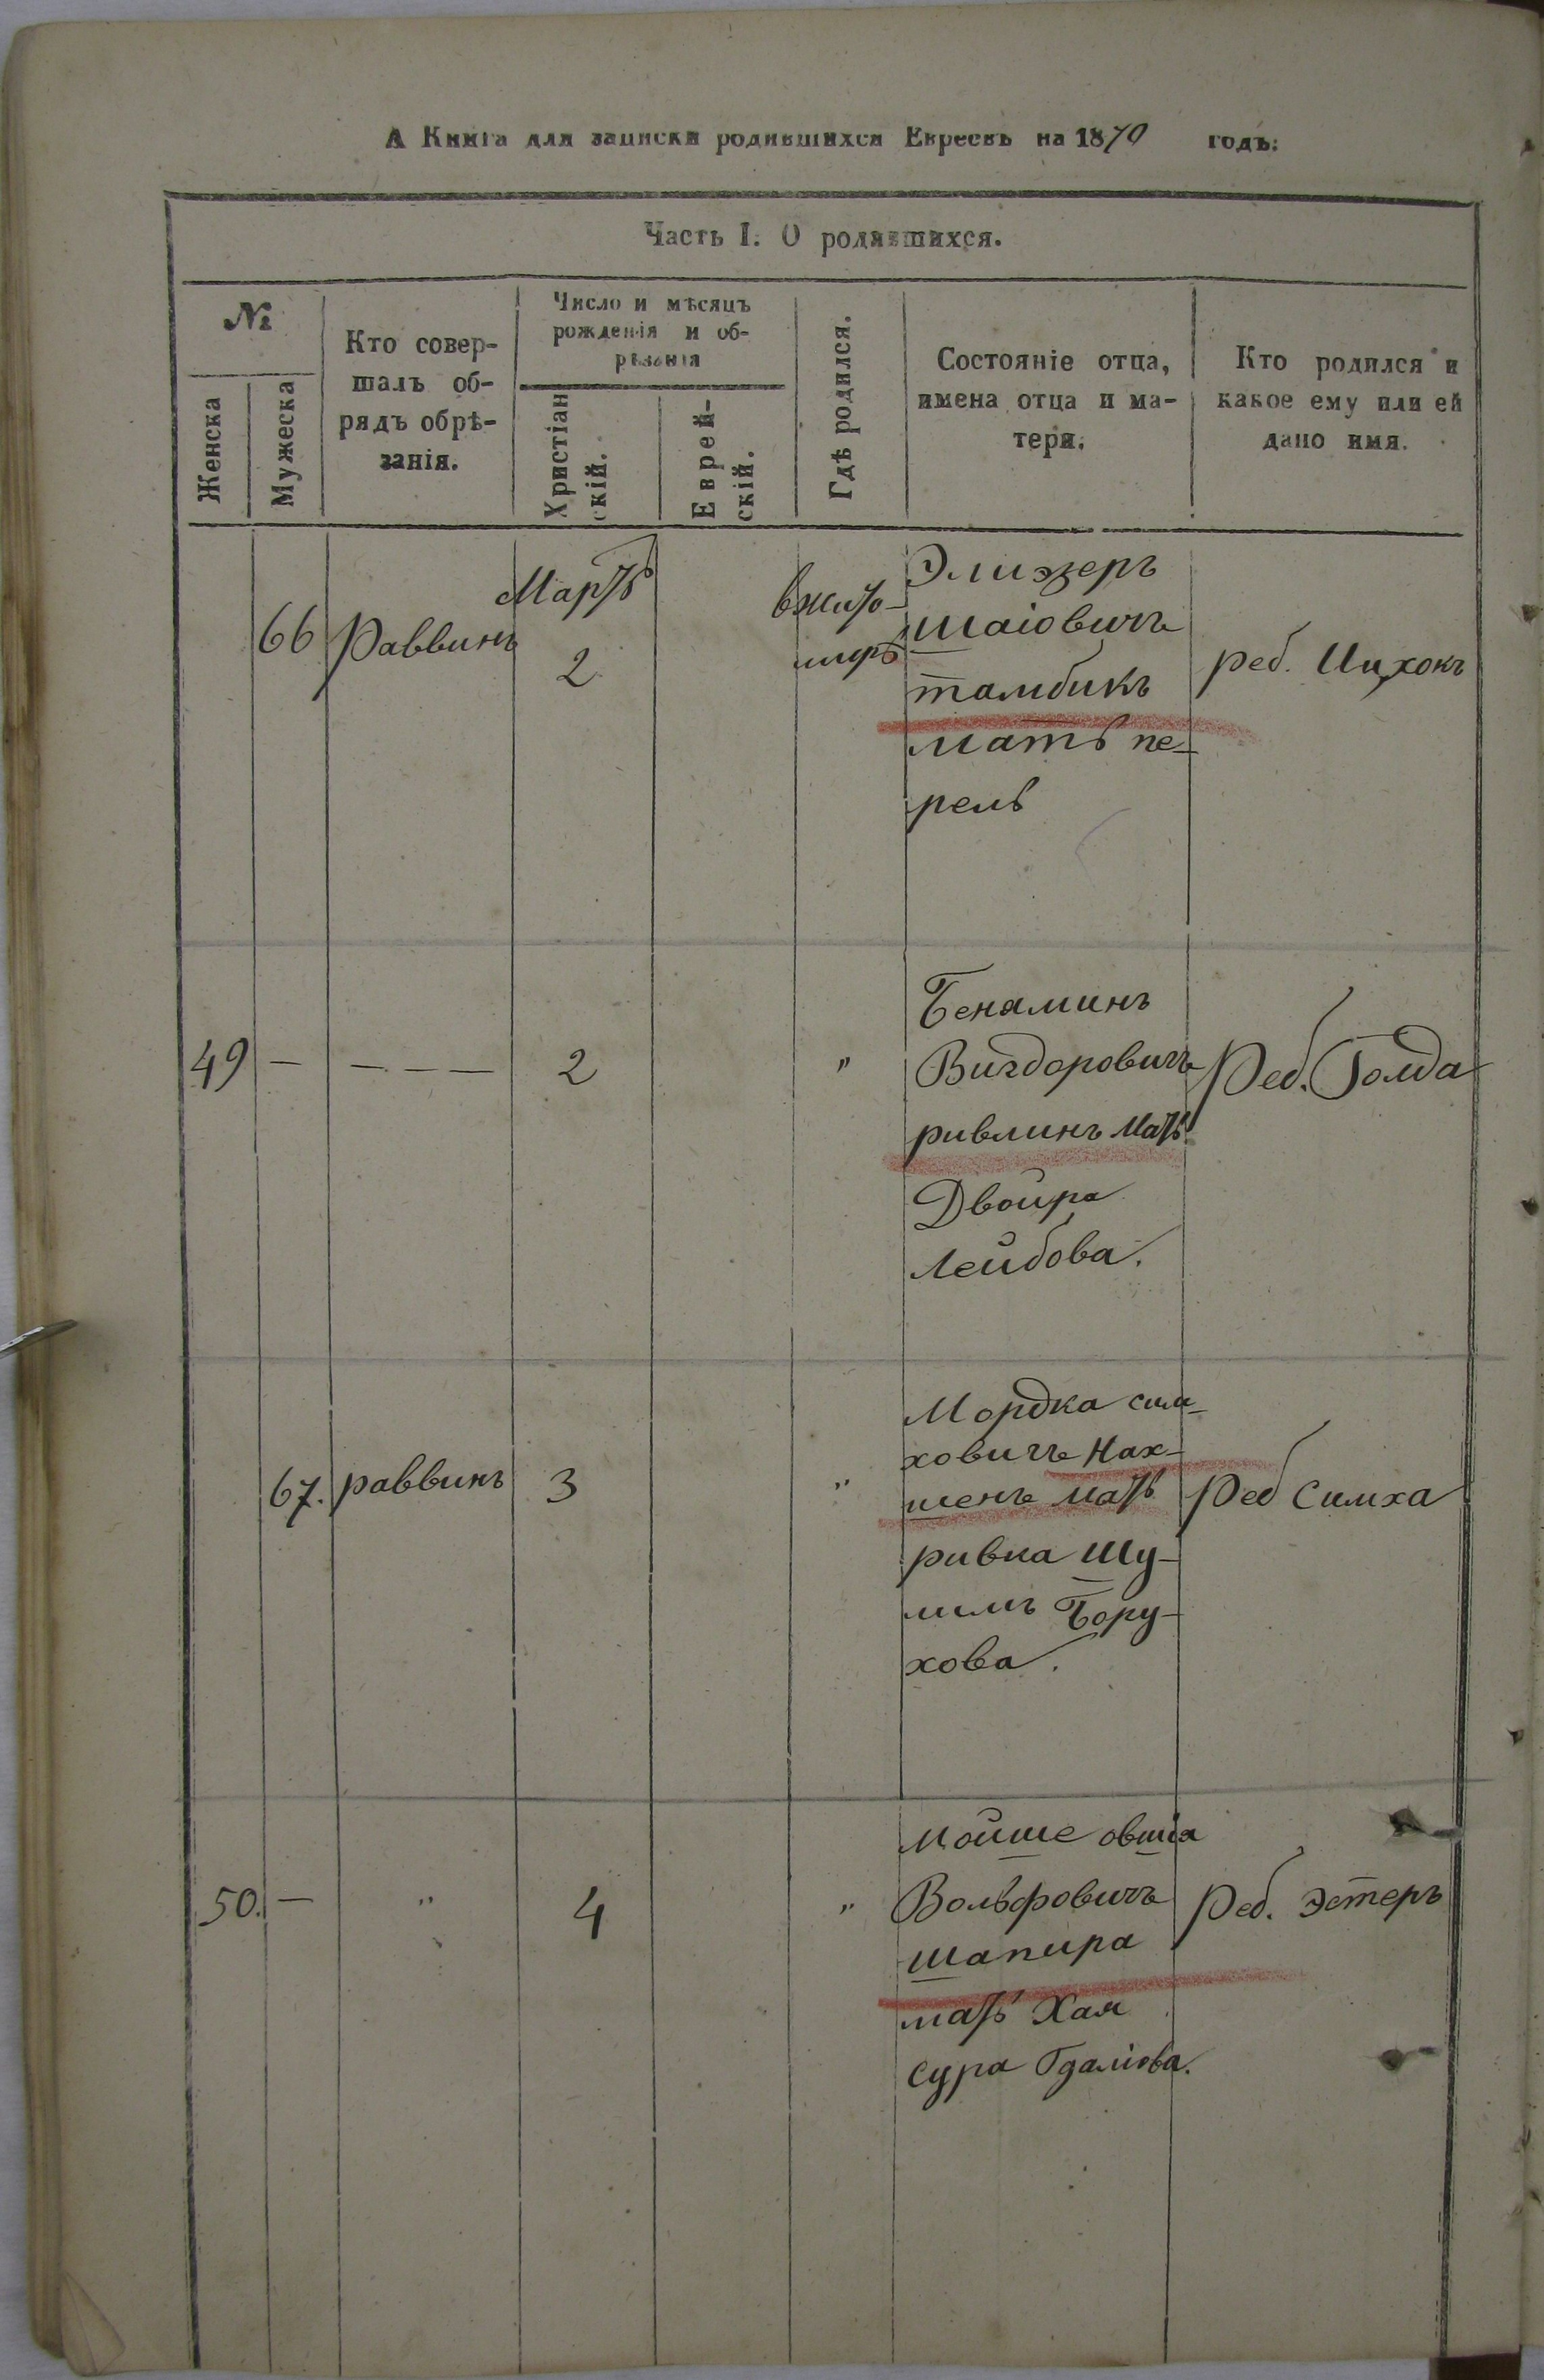 А Книга для записки родившихся Евреевъ на 1870 годъ.
Часть I. О родившихся.
№
Женска
Мужеска
Кто совер-
шалъ об-
рядъ обрѣ-
занія.
Число и мѣсяцъ
рожденія и об-
рѣзанія
Христіан
скій.
Еврей-
скій.
Гдѣ родился.
Состояніе отца,
имена отца и ма-
тери.
Кто родился и
какое ему или ей
дано имя.
66
Раввинъ
Мартъ
2
вжито-
миръ
Элиэзеръ
Шаіовичъ
тамбикъ
мать пе-
рель
реб. Ицхокъ
49
—
— - — —
2
"
Бенаминъ
Вигдоровичъ
ривлинъ мать
Двойра
Лейбова.
Реб. Голда
67.
раввинъ
3
"
Мордка сим-
ховичъ Нах-
шенъ мать
ривка Шу-
лимъ Бору-
хова.
Реб Симха
50.
—
"
4
"
мойше овшія
Вольфовичъ
шапира
мать Хая
сура Гдаліова.
Реб. Эстеръ